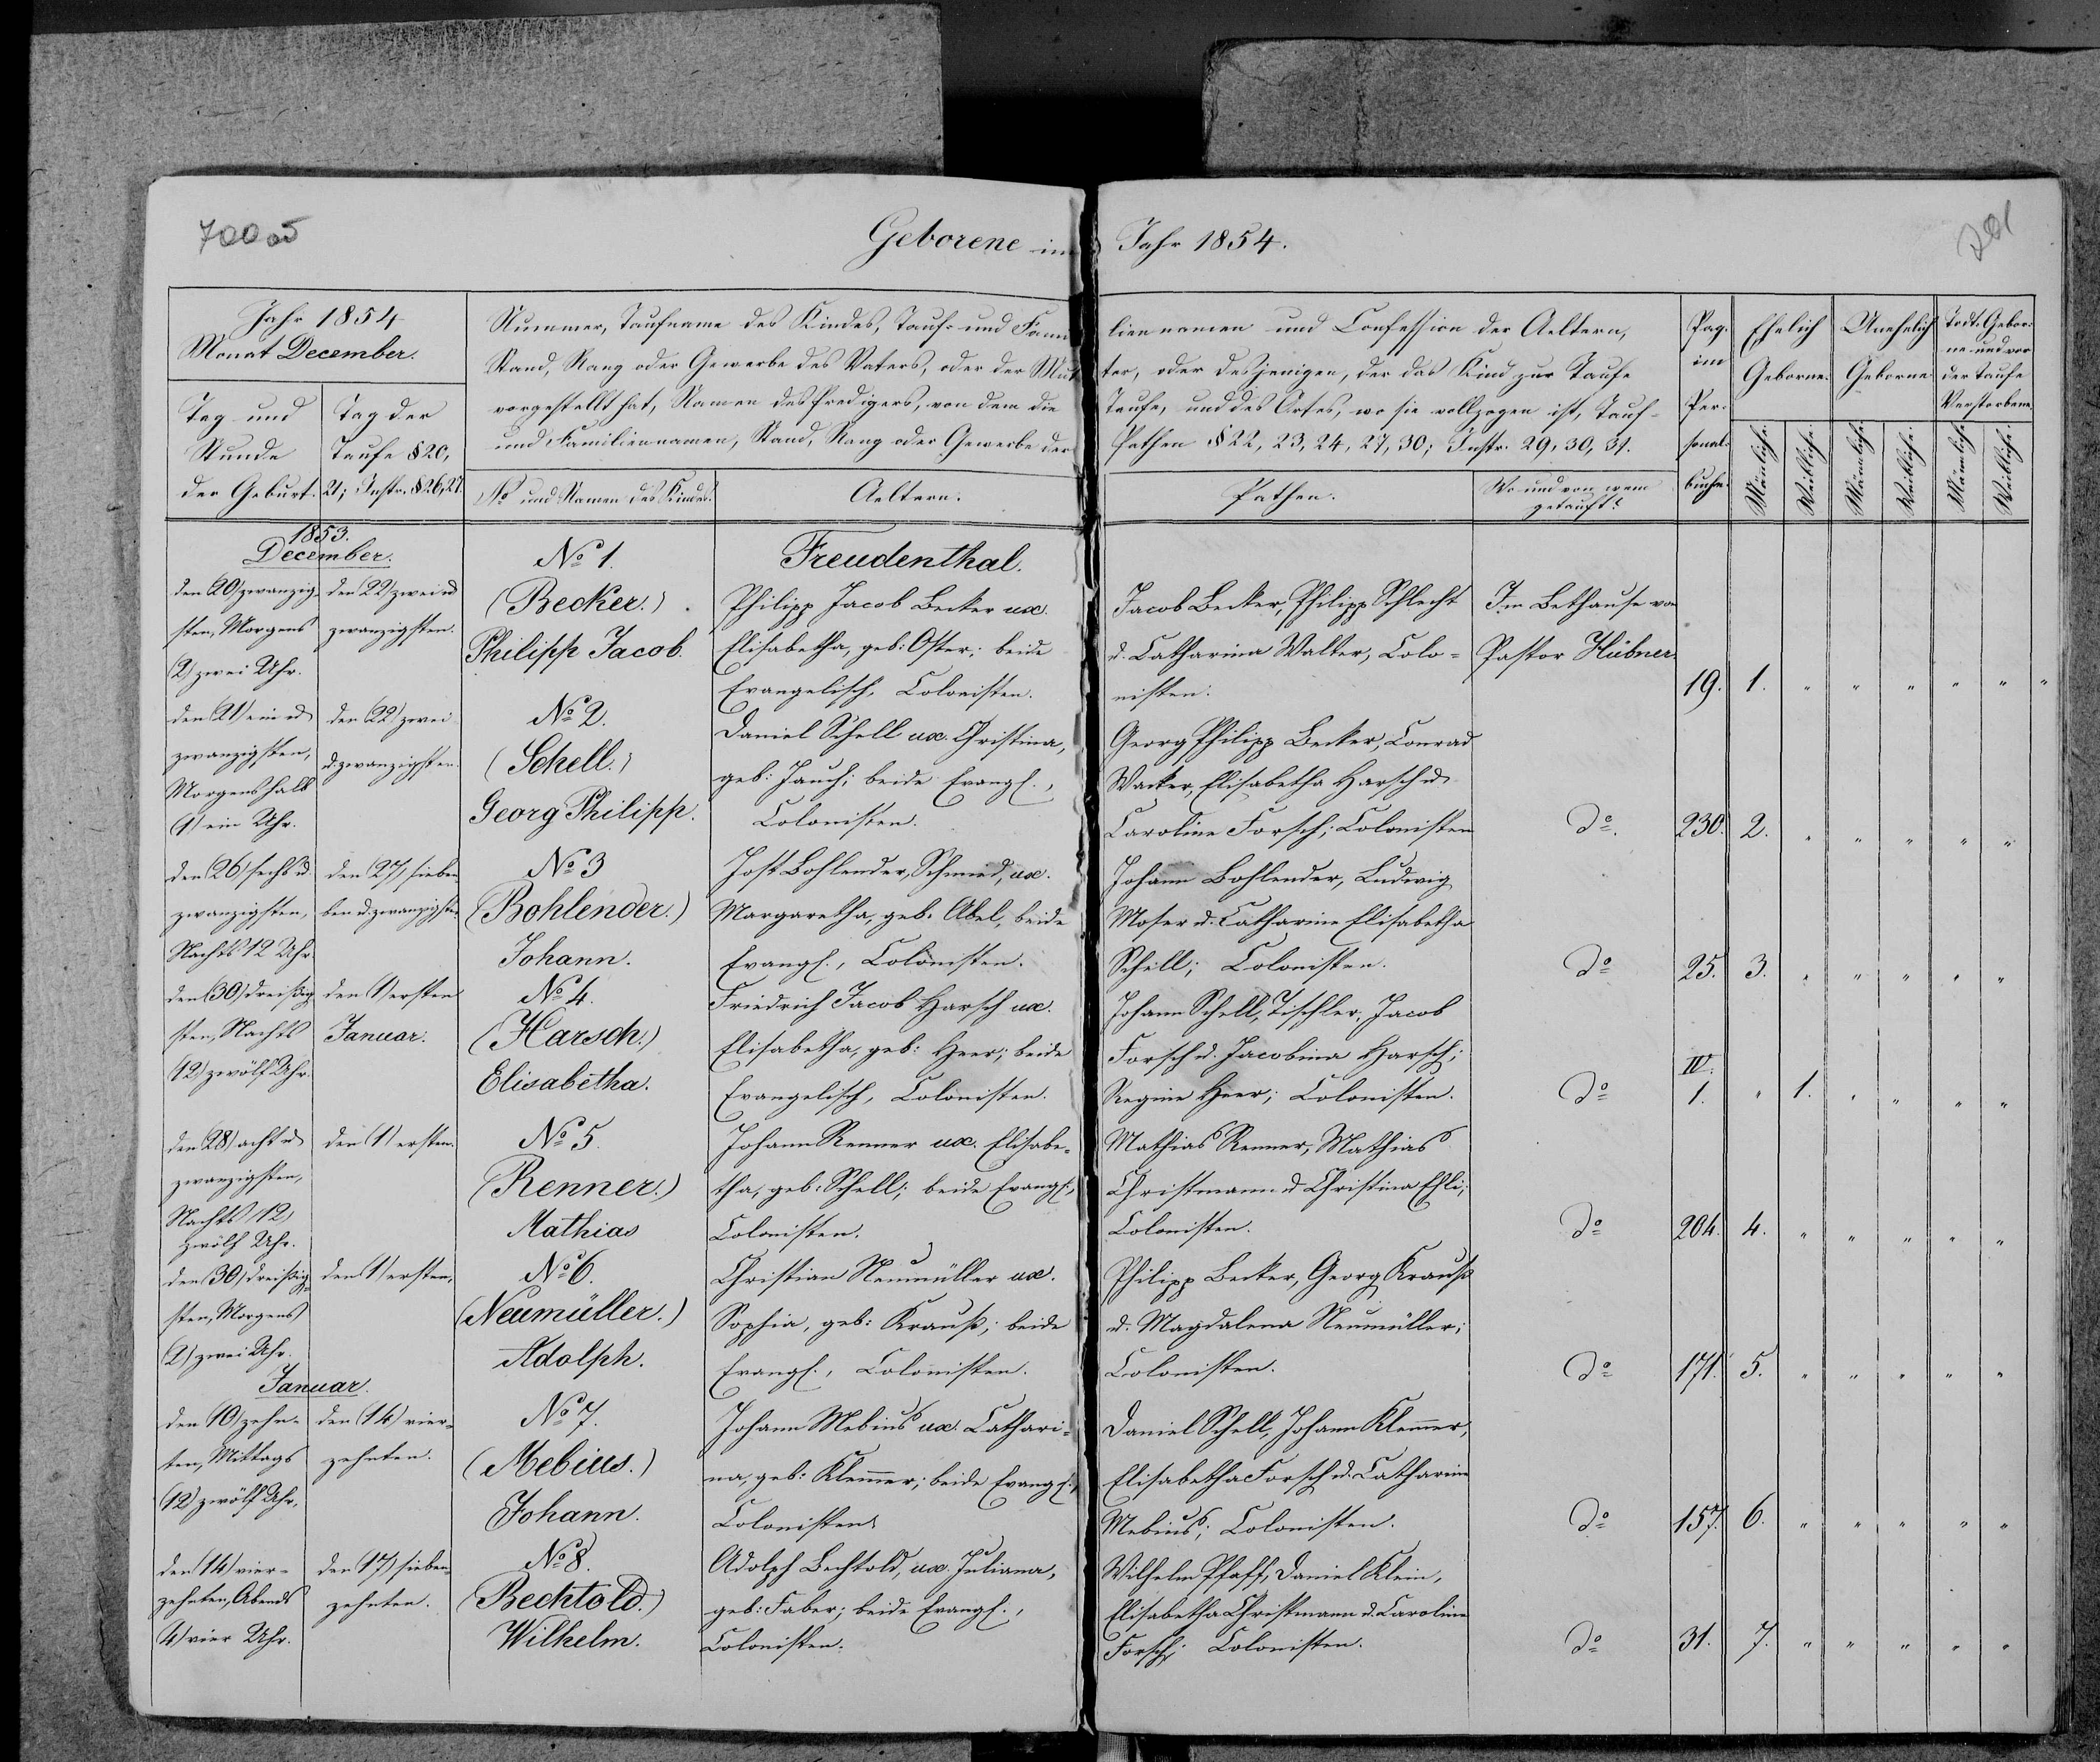 70005
201
Geborene im Jahr 1854.
Jahr 1854
Monat December.
Tag und
Stunde
der Geburt.
Tag der
Taufe § 20,
21; Instr. § 26, 27.
Nummer, Taufname des Kindes, Tauf- und Familiennamen und Confession der Aeltern,
Stand, Rang oder Gewerbe des Vaters, oder der Mutter, oder desjenigen, der das Kind zur Taufe
vorgestellt hat, Namen des Predigers, von dem die Taufe, und des Ortes, wo sie vollzogen ist, Tauf-
und Familiennamen, Stand, Rang oder Gewerbe der Pathen § 22, 23, 24, 27, 30; Instr. 29, 30, 31.
No und Namen des Kindes.
Aeltern.
Pathen.
Wo und von wem
getauft?
Pag.
im
Per-
sonal-
buche.
Ehelich
Geborne.
Unehelich
Geborne
Todt-Gebor-
ne und vor
der Taufe
Verstorbene.
Männliche.
Weibliche.
Männliche.
Weibliche.
Männliche.
Weibliche.
1853.
December.
den (20) zwanzig-
sten, Morgens
(2) zwei Uhr.
den (22) zwei u
zwanzigsten.
No 1.
(Becker.)
Philipp Jacob.
Freudenthal.
Philipp Jacob Becker ux.
Elisabetha, geb: Oster; beide
Evangelisch, Colonisten.
Jacob Becker, Philipp Schlecht
u. Catharina Walter, Colo-
nisten.
Im Bethause von
Pastor Hübner.
19. 1. " " " " " "
den (21) ein u
zwanzigsten,
Morgens halb
(1) ein Uhr.
den (22) zwei
u. zwanzigsten.
No 2.
(Schell.)
Georg Philipp.
Daniel Schell ux. Christina,
geb: Jauch; beide Evangl.,
Colonisten.
Georg Philipp Becker, Conrad
Wacker, Elisabetha Harsch u
Caroline Forsch; Colonisten
do. 230. 2. " " " " "
den (26) sechs u.
zwanzigsten,
Nachts 12 Uhr.
den (27) sieben
ben u. zwanzigsten
No 3
(Bohlender.)
Johann.
Jost Bohlender, Schmied, ux.
Margaretha, geb: Abel, beide
Evangl., Colonisten.
Johann Bohlender, Ludwig
Moser u. Catharina Elisabetha
Schell; Colonisten.
do 25. 3. " " " " "
den (30) dreißig-
sten, Nachts
(12) zwölf Uhr.
den (1) ersten
Januar.
No 4.
(Harsch.)
Elisabetha.
Friedrich Jacob Harsch ux.
Elisabetha, geb: Heer; beide
Evangelisch, Colonisten.
Johann Schell, Tischler, Jacob
Forsch u. Jacobina Harsch;
Regine Heer; Colonisten.
do IV. 1. " 1. " " " "
den (28) acht u
zwanzigsten,
Nachts (12)
zwölf Uhr.
den (1) ersten.
No 5.
(Renner.)
Mathias
Johann Renner ux. Elisabe-
tha, geb: Schell; beide Evangl.,
Colonisten.
Mathias Renner, Mathias
Christmann u Christina Ehli;
Colonisten.
do 204. 4. " " " " "
den (30) dreißig-
sten, Morgens
(2) zwei Uhr.
den (1) ersten.
No 6.
(Neumüller.)
Adolph.
Christian Neumüller ux.
Sophia, geb: Krauß; beide
Evangl., Colonisten.
Philipp Becker, Georg Krauß
u. Magdalena Neumüller;
Colonisten.
do 171. 5. " " " " "
Januar.
den (10) zehn-
ten, Mittags
(12) zwölf Uhr,
den (14) vier-
zehnten.
No 7.
(Mebius.)
Johann.
Johann Mebius ux. Cathari-
na, geb: Klemmer; beide Evangl.,
Colonisten.
Daniel Schell, Johann Klemmer,
Elisabetha Forsch u. Catharina
Mebius; Colonisten.
do 157. 6. " " " " "
den (14) vier-
zehnten, Abends
(4) vier Uhr.
den (17) sieben-
zehnten.
No 8.
(Bechtold.)
Wilhelm.
Adolph Bechtold, ux. Juliana,
geb: Faber; beide Evangl.,
Colonisten.
Wilhelm Pfaff, Daniel Klein,
Elisabetha Christmann u. Caroline
Forsch; Colonisten.
do 31. 7. " " " " "